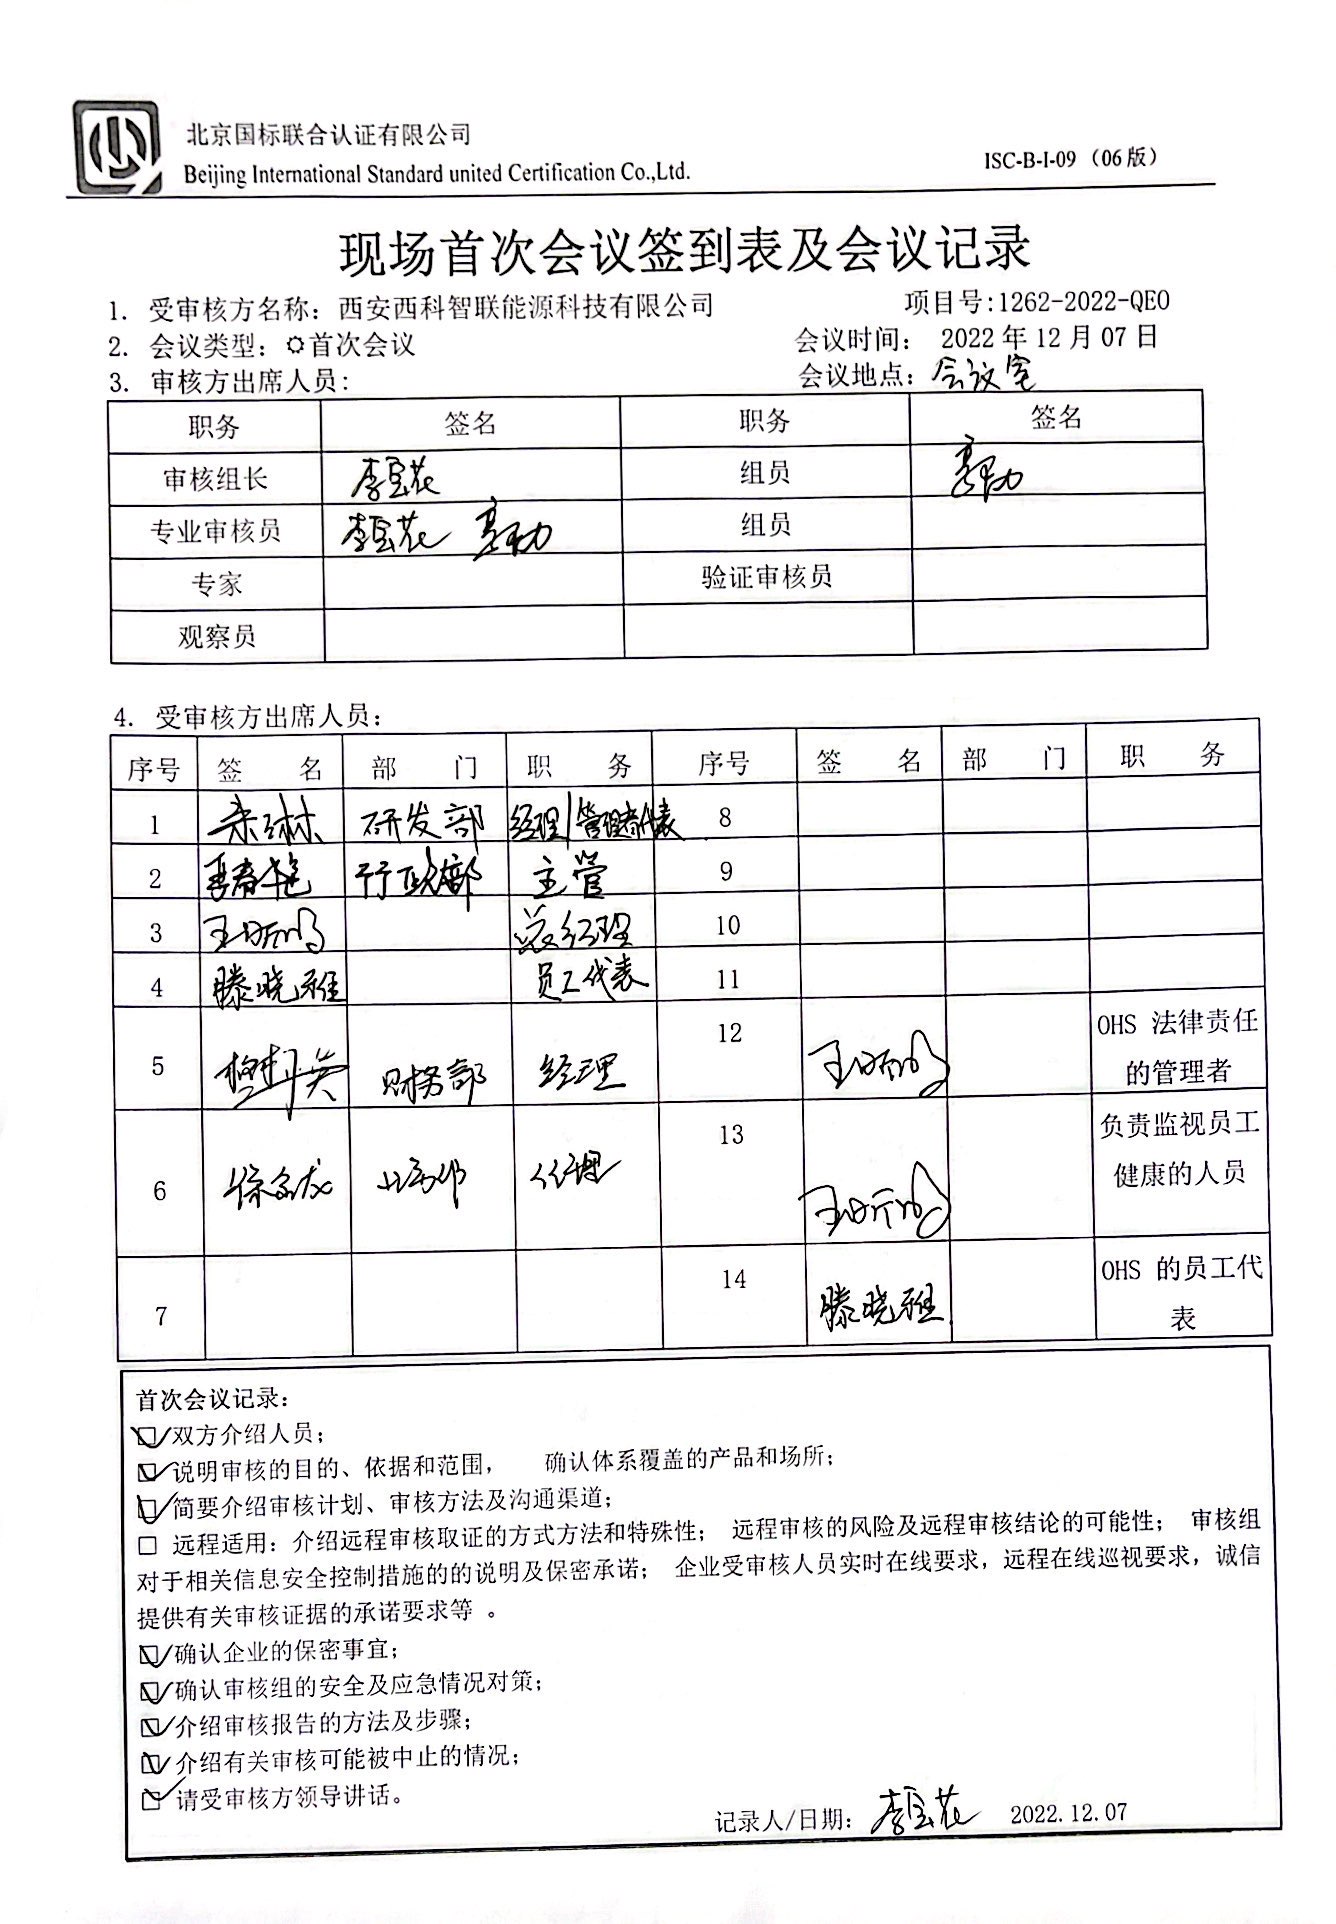 北京国标联合认证有限公司
Beijing International Standard united Certification Co.,Ltd.
ISC-B-I-09 (06版)
现场首次会议签到表及会议记录
1. 受审核方名称：西安西科智联能源科技有限公司 项目号:1262-2022-QEO
2. 会议类型：首次会议 会议时间： 2022 年 12 月 07 日
3. 审核方出席人员： 会议地点：会议室
职务 签名 职务 签名
审核组长 李宝花 组员
专业审核员 李宝花 组员
专家 验证审核员
观察员
4. 受审核方出席人员：
序号 签 名 部 门 职 务 序号 签 名 部 门 职 务
1 研发部 经理/管理者代表 8
2 行政部 主管 9
3 总经理 10
4 滕晓雅 员工代表 11
5 财务部 经理 12 OHS 法律责任
的管理者
6 经理 13 负责监视员工
健康的人员
7 14 滕晓雅 OHS 的员工代
表
首次会议记录：
双方介绍人员；
说明审核的目的、依据和范围， 确认体系覆盖的产品和场所；
简要介绍审核计划、审核方法及沟通渠道；
□ 远程适用：介绍远程审核取证的方式方法和特殊性； 远程审核的风险及远程审核结论的可能性； 审核组
对于相关信息安全控制措施的的说明及保密承诺； 企业受审核人员实时在线要求，远程在线巡视要求，诚信
提供有关审核证据的承诺要求等 。
确认企业的保密事宜；
确认审核组的安全及应急情况对策；
介绍审核报告的方法及步骤；
介绍有关审核可能被中止的情况；
请受审核方领导讲话。
记录人/日期： 李宝花 2022.12.07